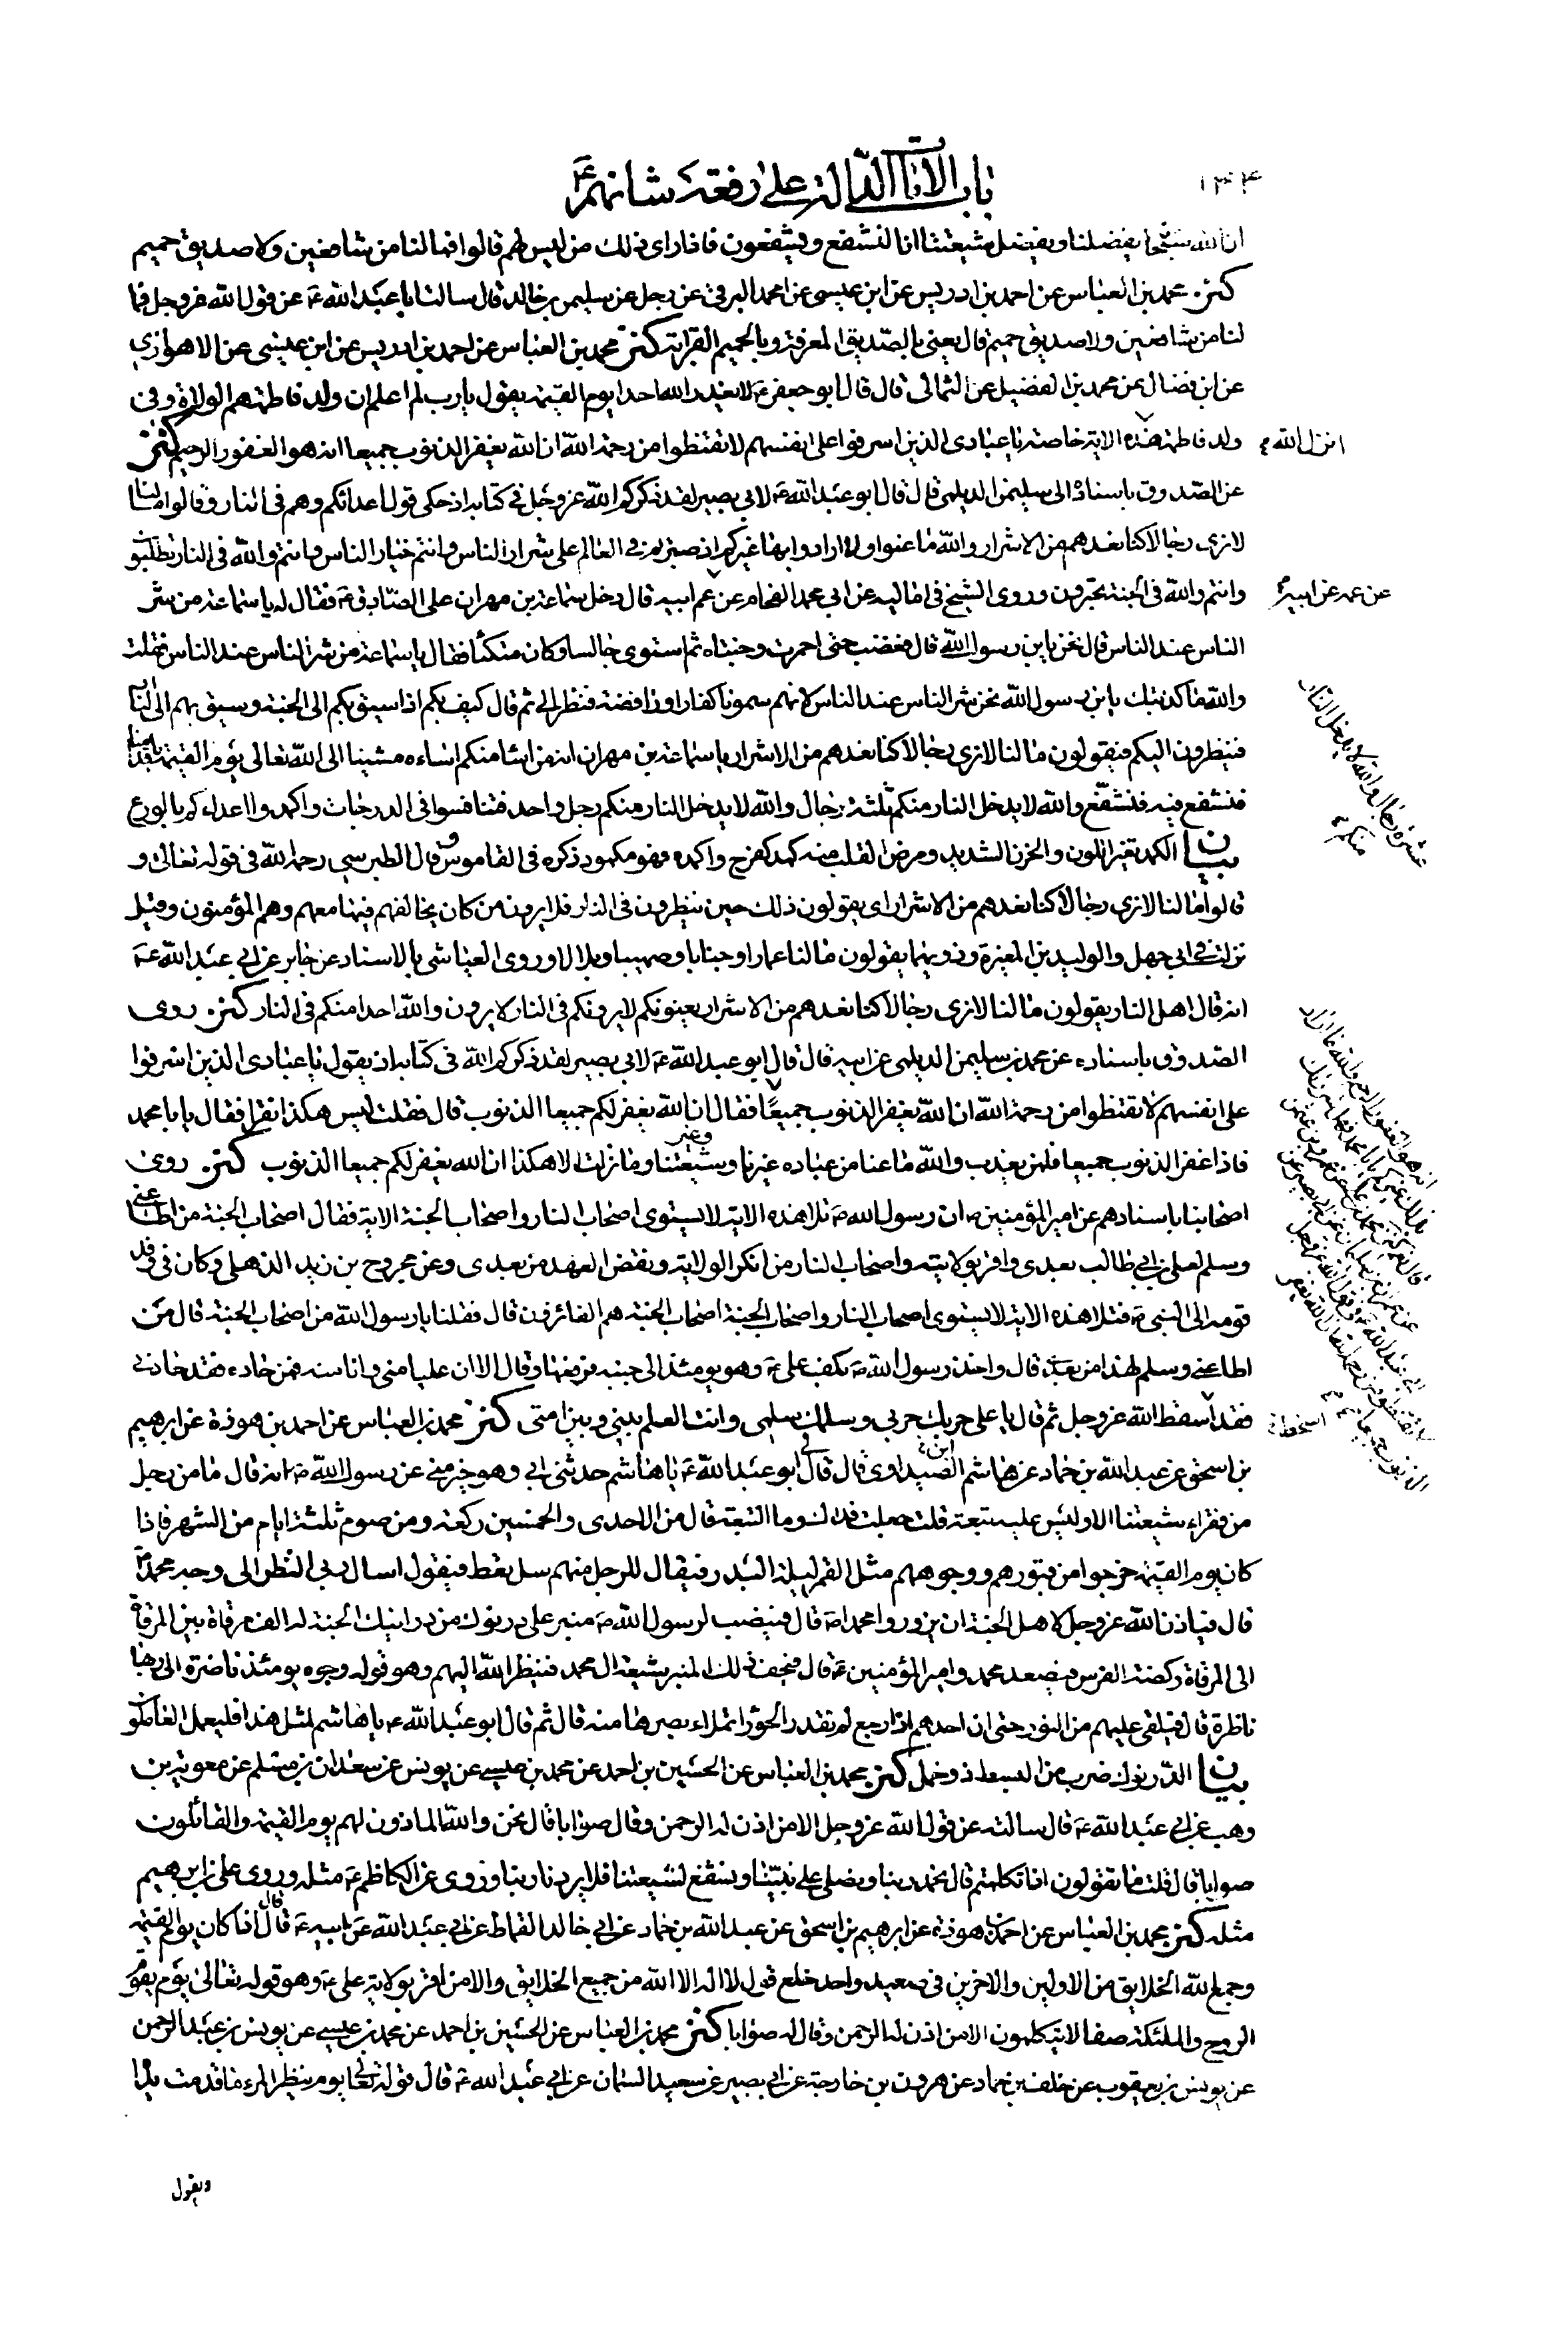 ١٣٤
باب الآيات الدالة على رفعة شانهم ع
ان الله سبحانه يفضلنا ويفضل شيعتنا انا لنشفع ويشفعون فاذا راى ذلك من ليس لهم قالوا فما لنا من شافعين ولا صديق حميم
كنز محمد بن العباس عن احمد بن ادريس عن ابن عيسى عن محمد البرقى عن رجل عن سليمن بن خالد قال سالت ابا عبد الله ع عن قول الله عز وجل فما
لنا من شافعين ولا صديق حميم قال يعنى بالصديق المعرفة وبالحميم القرابة كنز محمد بن العباس عن احمد بن ادريس عن ابن عيسى عن الاهوازى
عن ابن فضال عن محمد بن الفضيل عن الثمالى قال قال ابو جعفر ع لا يعذر الله احدا يوم القيمة يقول يا رب لم اعلم ان ولد فاطمة هم الولاة وفى
ولد فاطمة هذه الاية خاصة يا عبادى الذين اسرفوا على انفسهم لا تقنطوا من رحمة الله ان الله يغفر الذنوب جميعا انه هو الغفور الرحيم كنز
انزل الله
عن الصدوق باسناده الى سليمن الديلمى قال قال ابو عبد الله ع لابى بصير لقد ذكركم الله عز وجل فى كتابه اذ حكى قول اعدائكم وهم فى النار وقالوا ما لنا
لا نرى رجالا كنا نعدهم من الاشرار والله ما عنوا ولا ارادوا بها غيركم اذ صرتم فى العالم على شرار الناس وانتم خيار الناس وانتم والله فى النار تطلبون
وانتم والله فى الجنة تحبرون وروى الشيخ فى اماليه عن ابى محمد الفحام عن عم ابيه قال دخل سماعة بن مهران على الصادق ع فقال له يا سماعة من شر
عن عمه عن ابيه
الناس عند الناس قال نحن يا بن رسول الله قال فغضب حتى احمرت وجنتاه ثم استوى جالسا وكان متكئا فقال يا سماعة من شر الناس عند الناس فقلت
والله ما كذبتك يا بن رسول الله نحن شر الناس عند الناس لانهم سمونا كفارا ورافضة فنظر الى ثم قال كيف بكم اذا سيق بكم الى الجنة وسيق بهم الى النار
فينظرون اليكم فيقولون ما لنا لا نرى رجالا كنا نعدهم من الاشرار يا سماعة بن مهران انه من اساء منكم اساءة مشينا الى الله تعالى يوم القيمة باقدامنا
فنشفع فيه فنشفع والله لا يدخل النار منكم ثلثة رجال والله لا يدخل النار منكم رجل واحد فتنافسوا فى الدرجات واكمدوا اعداءكم بالورع
عشرة رجال والله لا يدخل النار منكم
بيان الكمد تغير اللون والحزن الشديد ومرض القلب منه كمد كفرح واكمده فهو مكمود ذكره فى القاموس وقال الطبرسى رحمه الله فى قوله تعالى و
قالوا ما لنا لا نرى رجالا كنا نعدهم من الاشرار اى يقولون ذلك حين ينظرون فى النار فلا يرون من كان يخالفهم فيها معهم وهم المؤمنون وقيل
نزلت فى ابى جهل والوليد بن المغيرة وذويهما يقولون ما لنا عمارا وخبابا وصهيبا وبلالا وروى العياشى بالاسناد عن جابر عن ابى عبد الله ع
انه قال اهل النار يقولون ما لنا لا نرى رجالا كنا نعدهم من الاشرار يعنونكم لا يرونكم فى النار لا يرون والله احدا منكم فى النار كنز روى
الصدوق باسناده عن محمد بن سليمن الديلمى عن ابيه قال قال ابو عبد الله ع لابى بصير لقد ذكركم الله فى كتابه اذ يقول يا عبادى الذين اسرفوا
على انفسهم لا تقنطوا من رحمة الله ان الله يغفر الذنوب جميعا فقال ان الله يغفر لكم جميعا الذنوب قال فقلت ليس هكذا نقرا فقال يا با محمد
فاذا غفر الذنوب جميعا فلمن يعذب والله ما عنا من عباده غيرنا وغير شيعتنا وما نزلت الا هكذا ان الله يغفر لكم جميعا الذنوب كنز روى
اصحابنا باسنادهم عن امير المؤمنين ص ان رسول الله ص تلا هذه الاية لا يستوى اصحاب النار واصحاب الجنة الاية فقال اصحاب الجنة من اطاعنى
وسلم لعلى بن ابى طالب بعدى واقر بولايته واصحاب النار من انكر الولاية ونقض العهد من بعدى وعن مجروح بن زيد الذهلى وكان فى وفد
قومه الى النبى ص فتلا هذه الاية لا يستوى اصحاب النار واصحاب الجنة اصحاب الجنة هم الفائزون قال فقلنا يا رسول الله من اصحاب الجنة قال من
اطاعنى وسلم لهذا من بعدى قال واخذ رسول الله ص بكف على ع وهو يومئذ الى جنبه فرفعها وقال الا ان عليا منى وانا منه فمن حاده فقد حادنى
فقد اسخط الله عز وجل ثم قال يا على حربك حربى وسلمك سلمى وانت العلم بينى وبين امتى كنز محمد بن العباس عن احمد بن هوذة عن ابرهيم
اسخط
بن اسحق عن عبد الله بن حماد عن هاشم الصيداوى قال قال لى ابو عبد الله ع يا هاشم حدثنى ابى وهو خير منى عن رسول الله ص انه قال ما من رجل
من فقراء شيعتنا الا وليس عليه تبعة قلت جعلت فداك وما التبعة قال من الاحدى والخمسين ركعة ومن صوم ثلثة ايام من الشهر فاذا
كان يوم القيمة خرجوا من قبورهم ووجوههم مثل القمر ليلة البدر فيقال للرجل منهم سل تعط فيقول اسال ربى النظر الى وجه محمد ص
قال فياذن الله عز وجل لاهل الجنة ان يزوروا محمدا ص قال فينصب لرسول الله ص منبر على درنوك من درانيك الجنة له الف مرقاة بين المرقاة
الى المرقاة ركضة الفرس فيصعد محمد وامير المؤمنين ع قال فيحف ذلك المنبر شيعة ال محمد فينظر الله اليهم وهو قوله وجوه يومئذ ناضرة الى ربها
ناظرة قال فيلقى عليهم من النور حتى ان احدهم اذا رجع لم تقدر الحورا تملاء بصرها منه قال ثم قال ابو عبد الله ع يا هاشم لمثل هذا فليعمل العاملون
بيان الدرنوك ضرب من البسط ذو خمل كنز محمد بن العباس عن الحسين بن احمد عن محمد بن عيسى عن يونس عن سعدان بن مسلم عن معوية بن
وهب عن ابى عبد الله ع قال سالته عن قول الله عز وجل الا من اذن له الرحمن وقال صوابا قال نحن والله الماذون لهم يوم القيمة والقائلون
صوابا قال قلت ما تقولون اذا تكلمتم قال نحمد ربنا ونصلى على نبينا ونشفع لشيعتنا فلا يردنا ربنا وروى عن الكاظم ع مثله وروى على بن ابرهيم
مثله كنز محمد بن العباس عن احمد بن هوذة عن ابرهيم بن اسحق عن عبد الله بن حماد عن ابى خالد القماط عن ابى عبد الله عن ابيه ع قال قال اذا كان يوم القيمة
وجمع الله الخلايق من الاولين والاخرين فى صعيد واحد خلع قول لا اله الا الله من جميع الخلايق والا من اقر بولاية على ع وهو قوله تعالى يوم يقوم
الروح والملئكة صفا لا يتكلمون الا من اذن له الرحمن وقال له صوابا كنز محمد بن العباس عن الحسين بن احمد عن محمد بن عيسى عن يونس بن عبد الرحمن
عن يونس بن يعقوب عن خلف بن حماد عن هرون بن خارجة عن ابى بصير عن سعيد السمان عن ابى عبد الله ع قال قوله تعالى يوم ينظر المرء ما قدمت يداه
ويقول